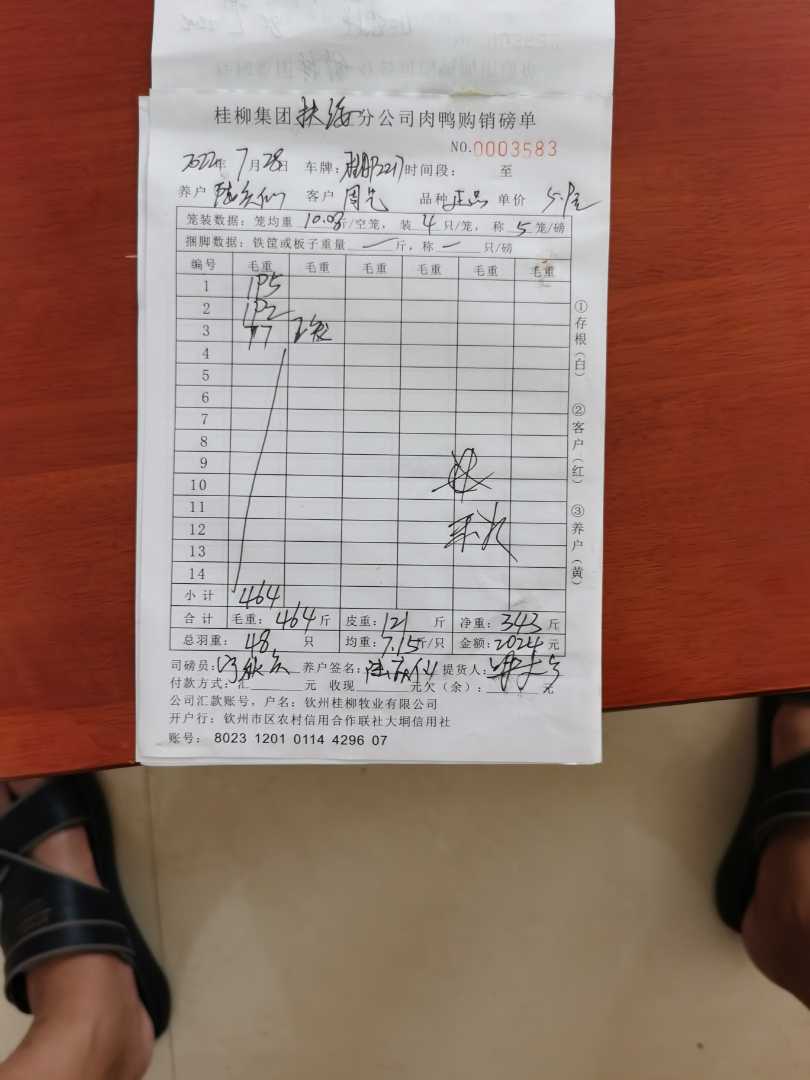 桂柳集团扶海分公司肉鸭购销磅单
NO.0003583
2022年7月28日 车牌: 时间段: 至
养户 客户 周 品种 正品 单价
笼装数据: 笼均重 10.08斤/空笼, 装 4 只/笼, 称 5 笼/磅
捆脚数据: 铁筐或板子重量 一 斤, 称 一 只/磅
编号 毛重 毛重 毛重 毛重 毛重 毛重
1
2
3
4
5
6
7
8
9
10
11
12
13
14
小计 464
合计 毛重: 464斤 皮重: 121 斤 净重: 343斤
总羽重: 48 只 均重: 7.15斤/只 金额: 2024元
司磅员: 养户签名: 提货人:
付款方式: 汇 元 收现 元欠(余): 元
公司汇款账号, 户名: 钦州桂柳牧业有限公司
开户行: 钦州市区农村信用合作联社大垌信用社
账号: 8023 1201 0114 4296 07
①存根(白) ②客户(红) ③养户(黄)